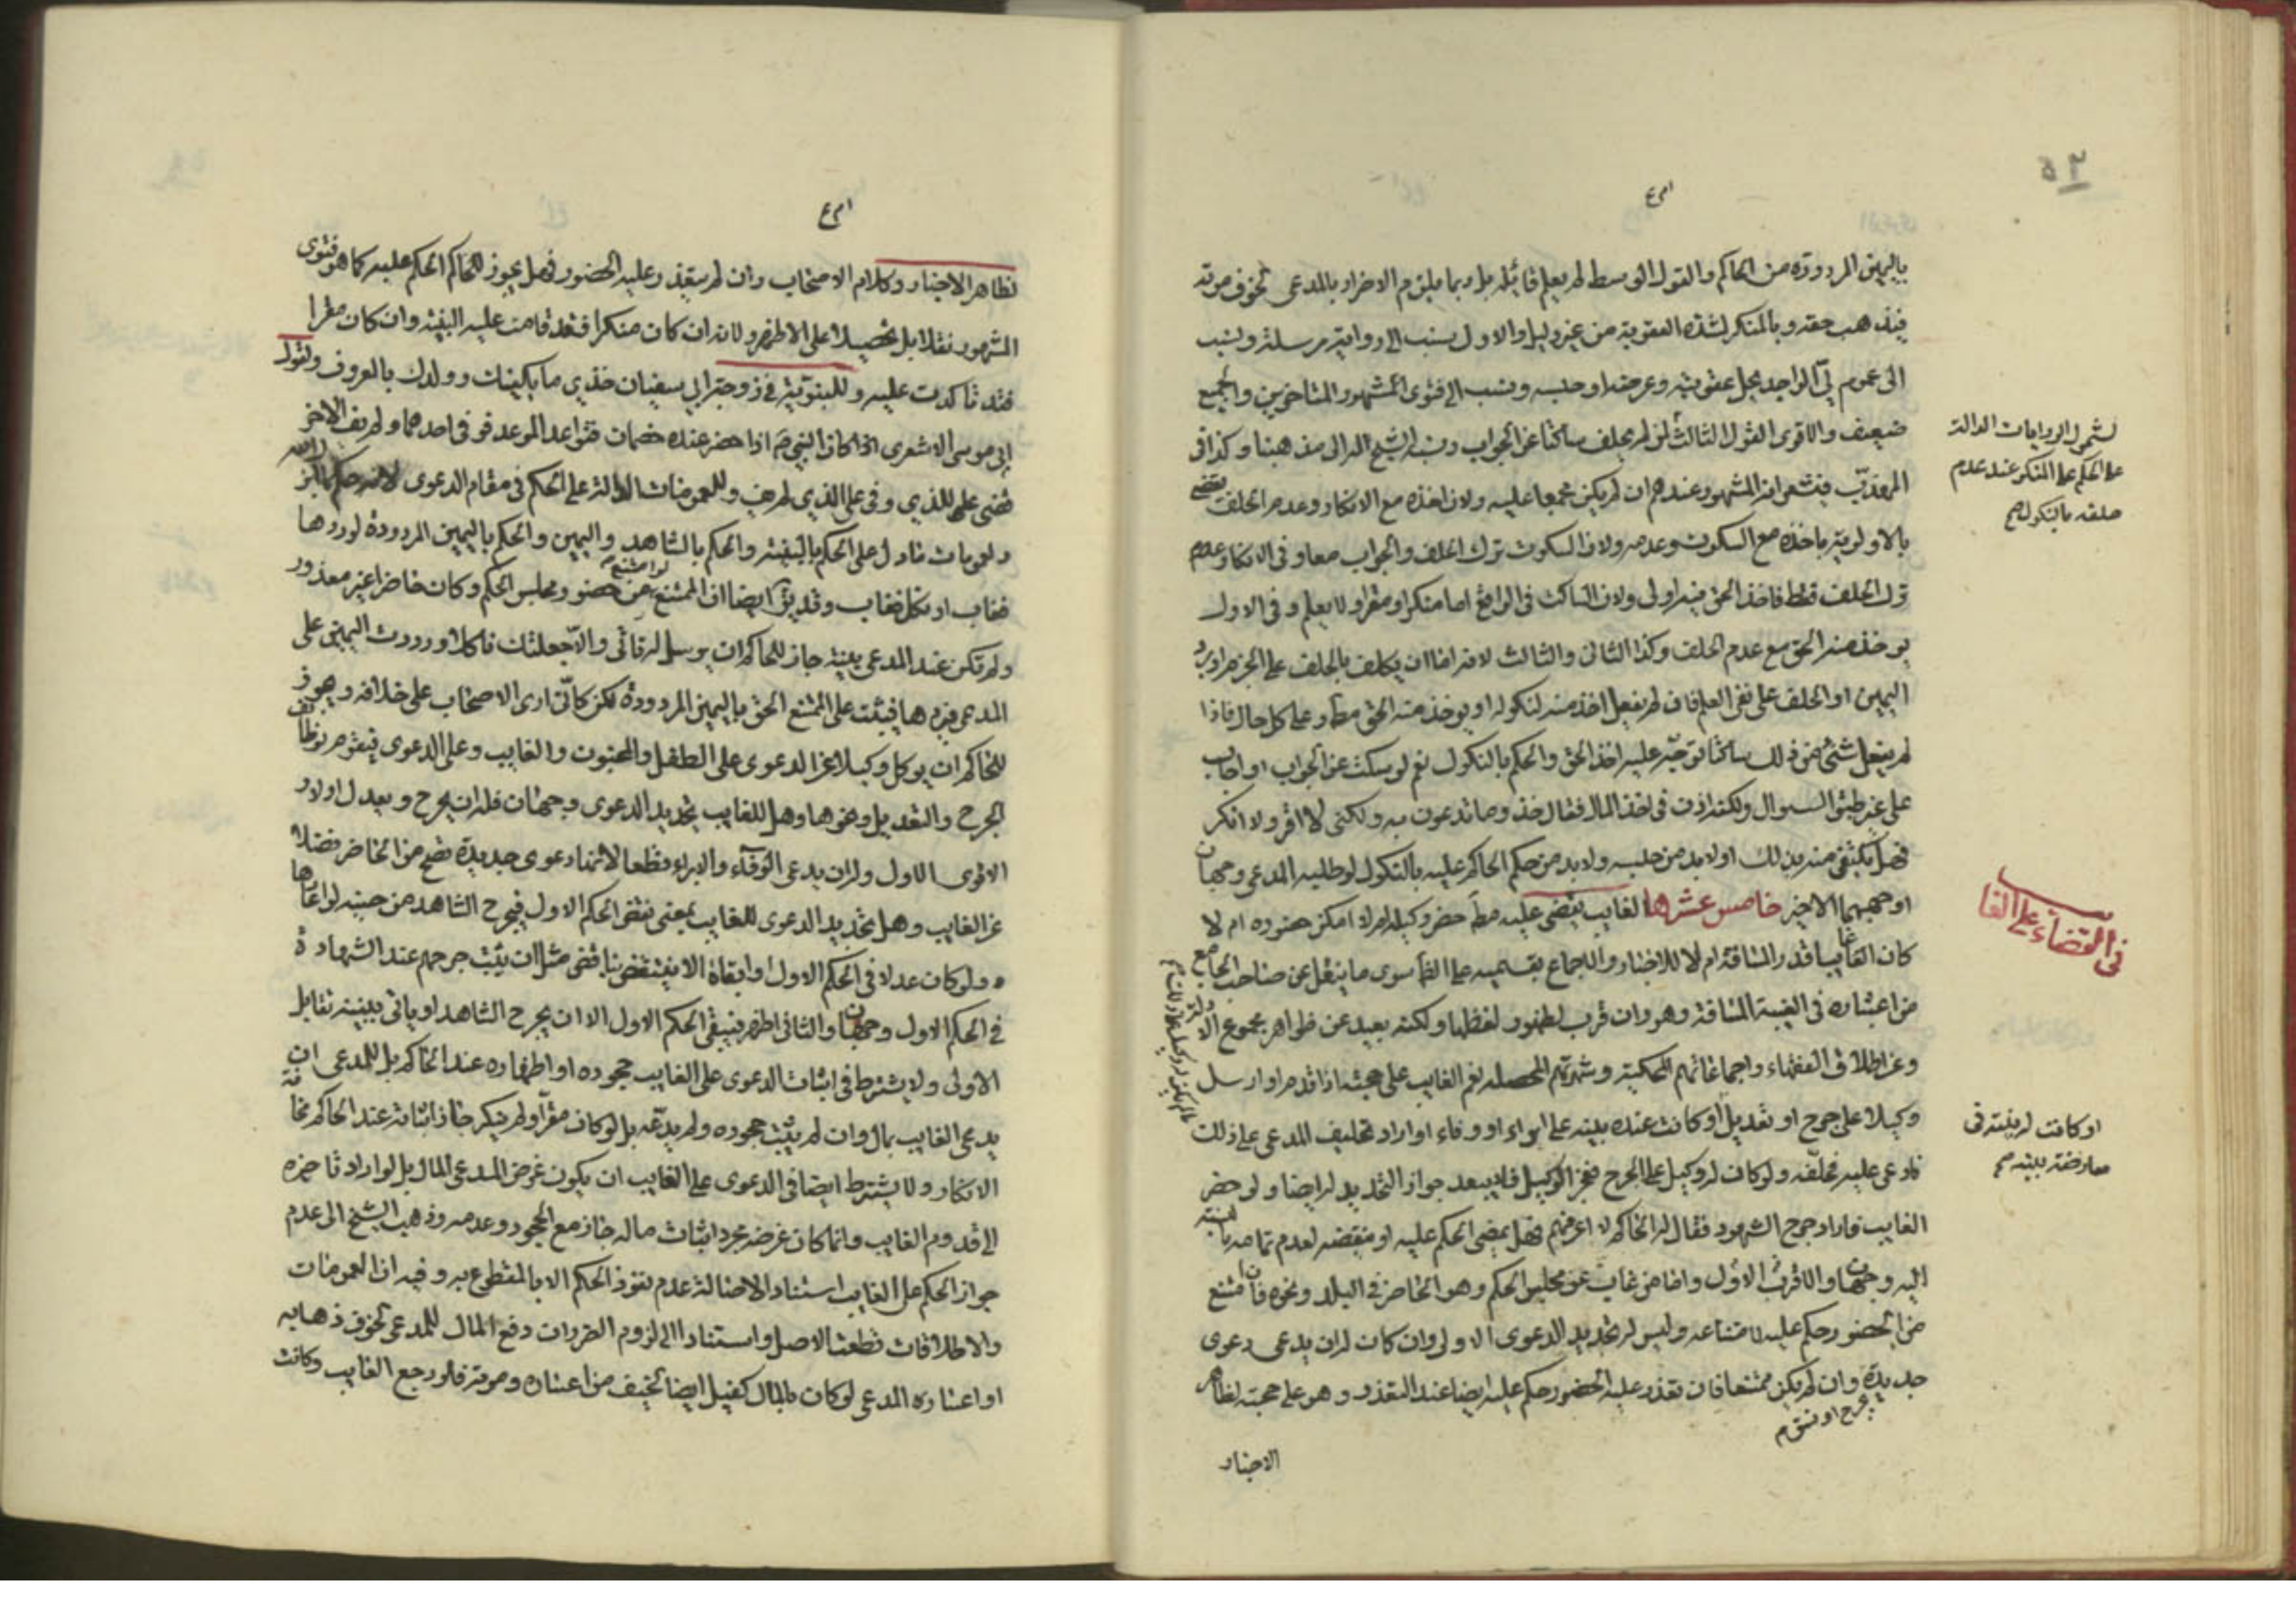 ٥٢
باليمين المردودة من الحاكم والقول الوسط لم يعلم قائله بل وربما يلزم الاضرار بالمدعي لخوف موته
فيذهب حقه وبالمنكر لشدة العقوبة من غير دليل والاول ينسب الى رواية مرسلة وينسب
الى عموم ليّ الواجد يحل عقوبته وعرضه او حبسه وينسب الى فتوى المشهور المتاخرين والجميع
ضعيف والاقوى القول الثالث لو لم يحلف ساكتا عن الجواب ونسبه الشيخ الى مذهبنا وكذا في
المهذب فيشعر انه المشهور عندهم ان لم يكن مجمعا عليه ولان اخذه مع الانكار وعدم الحلف يقضي
بالاولوية باخذه مع السكوت وعدمه ولان السكوت ترك الحلف والجواب معا وفي الانكار وعدم
ترك الحلف فقط فاخذ الحق فيه اولى ولان الساكت في الواقع اما منكر او مقر او لا يعلم وفي الاول
يوخذ منه الحق مع عدم الحلف وكذا الثاني والثالث لا فاما ان يكلف بالحلف على الجزم او يرد
اليمين او الحلف على نفي العلم فان لم يفعل اخذ منه لنكوله او يوخذ منه الحق مط وعلى كل حال فاذا
لم يفعل شئ من ذلك ساكتا توجّه عليه اخذ الحق والحكم بالنكول نعم لو سكت عن الجواب او اجاب
على غير طبق السوال ولكنه اذن في اخذ المال فقال خذوا ما تدعون به ولكني لا اقر ولا انكر
فهل يكتفى منه بذلك او لابد من حبسه ولابد من حكم الحاكم عليه بالنكول لو طلبه المدعي وجهان
اوجههما الاخير خامس عشرها الغايب يقضى عليه مط حضر وكيله ام لا امكن حضوره ام لا
كان الغايب قدر المسافة ام لا للاخبار والاجماع بقسميه على الظ سوى ما ينقل عن صاحب الجامع
من اعتباره في الغيبة المسافة وهو وان قرب لظهور لفظها ولكنه بعيد عن ظواهر مجموع الادلة
وعن اطلاق الفقهاء واجماعاتهم المحكية وشهرتهم المحصلة نعم الغايب على حجته اذا قدم او ارسل
وكيلا على جرح او تعديل او كانت عنده بينة على ابراء او وفاء او اراد تحليف المدعي على ذلك
فادعى عليه فحلّفه ولو كان له وكيل على الجرح فعجز الوكيل فلا يبعد جواز التجديد له ايضا ولو حضر
الغايب فاراد جرح الشهود فقال له الحاكم لا اعرفهم فهل يمضى الحكم عليه او ينقضه لعدم تمامه بالنسبة
اليه وجهان والاقرب الاول واما من غاب عن مجلس الحكم وهو الحاضر في البلد ونحوه فان امتنع
من الحضور حكم عليه لامتناعه وليس له تجديد الدعوى الاولى وان كان له ان يدعي دعوى
جديدة وان لم يكن ممتنعا فان تعذر عليه الحضور حكم عليه ايضا عند التعذر وهو على حجته لظاهر
الاخبار
لشمول الروايات الدالة
على الحكم على المنكر عند عدم
حلفه بالنكول صح
في القضاء على الغايب
او كانت له بينة في
معارضة بينته صح
لظاهر الاخبار وكلام الاصحاب وان لم يتعذر عليه الحضور فهل يجوز للحاكم الحكم عليه كما هو فتوى
المشهور نقلا بل تحصيلا على الاظهر ولانه ان كان منكرا فقد قامت عليه البينة وان كان مقرا
فقد تاكدت عليه وللنبوية في زوجة ابي سفيان خذي ما يكفيك وولدك بالمعروف ولقول
ابي موسى الاشعري اذا كان النبي ص اذا حضر عنده خصمان فتواعدا الموعد فوفى احدهما ولم يف الاخر
قضى للذي وفى على الذي لم يف وللعمومات الدالة على الحكم في مقام الدعوى
وعمومات ما دل على الحكم بالبينة والحكم بالشاهد واليمين والحكم باليمين المردودة لو ردها
فغاب او نكل فغاب وقد يق ايضا ان الممتنع لو امتنع من حضور مجلس الحكم وكان حاضرا غير معذور
ولم تكن عند المدعي بينة جاز للحاكم ان يرسل له تاتي والا جعلتك ناكلا ورددت اليمين على
المدعي فيردها فيثبت على الممتنع الحق باليمين المردودة لكن كاني ارى الاصحاب على خلافه ويجوز
للحاكم ان يوكل وكيلا عن الدعوى على الطفل والمجنون والغايب وعلى الدعوى فيقوم بوظايف
الجرح والتعديل ونحوهما وهل للغايب تجديد الدعوى وجهان فله ان يجرح ويعدل اولا
الاقوى الاول وله ان يدعي الوفاء والابراء قطعا لانها دعوى جديدة تصح من الحاضر فضلا
عن الغايب وهل تجديد الدعوى للغايب بمعنى نقض الحكم الاول فيجرح الشاهد من حينه لو اعادها
ولو كان عدلا في الحكم الاول او ابقاء الا ينتقض بناقض مثل ان يثبت جرحهم عند الشهادة
في الحكم الاول وجهان والثاني اظهر فيبقى الحكم الاول الا ان يجرح الشاهد او ياتي ببينة تقابل
الاولى ولا يشترط في اثبات الدعوى على الغايب جحوده او اظهاره عند الحاكم بل للمدعي ان
يدعي الغايب بمال وان لم يثبت جحوده ولم يدعه بل لو كان مقرا ولم ينكر جاز اثباته عند الحاكم مخافة
الانكار ولا يشترط ايضا في الدعوى على الغايب ان يكون غرض المدعي المال بل لو اراد تاخيره
الى قدوم الغايب وانما كان غرضه مجرد اثبات ماله جاز مع الجحود وعدمه وذهب الشيخ الى عدم
جواز الحكم على الغايب استنادا لاصالة عدم نفوذ الحكم الا بالمقطوع به وفيه ان العمومات
والاطلاقات قطعت الاصل واستنادا الى لزوم الضرر ان دفع المال للمدعي لخوف ذهابه
او اعساره المدعي لو كان بالمال كفيل ايضا لخيف من اعساره وموته فلو رجع الغايب وكانت